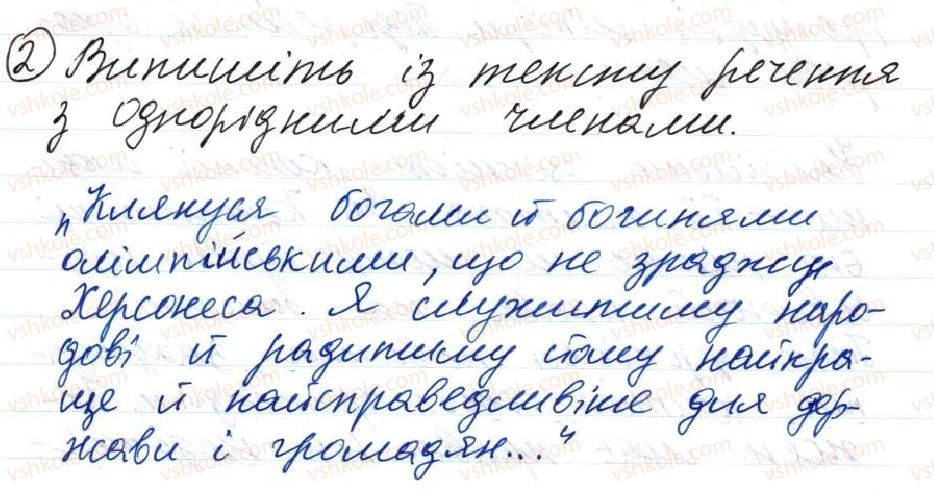 2 Випишіть із тексту речення
з однорідними членами.
„Клянуся богами й богинями
олімпійськими, що не зраджу
Херсонеса. Я служитиму наро-
дові й радитиму йому найкра-
ще й найсправедливіше для дер-
жави і громадян..."